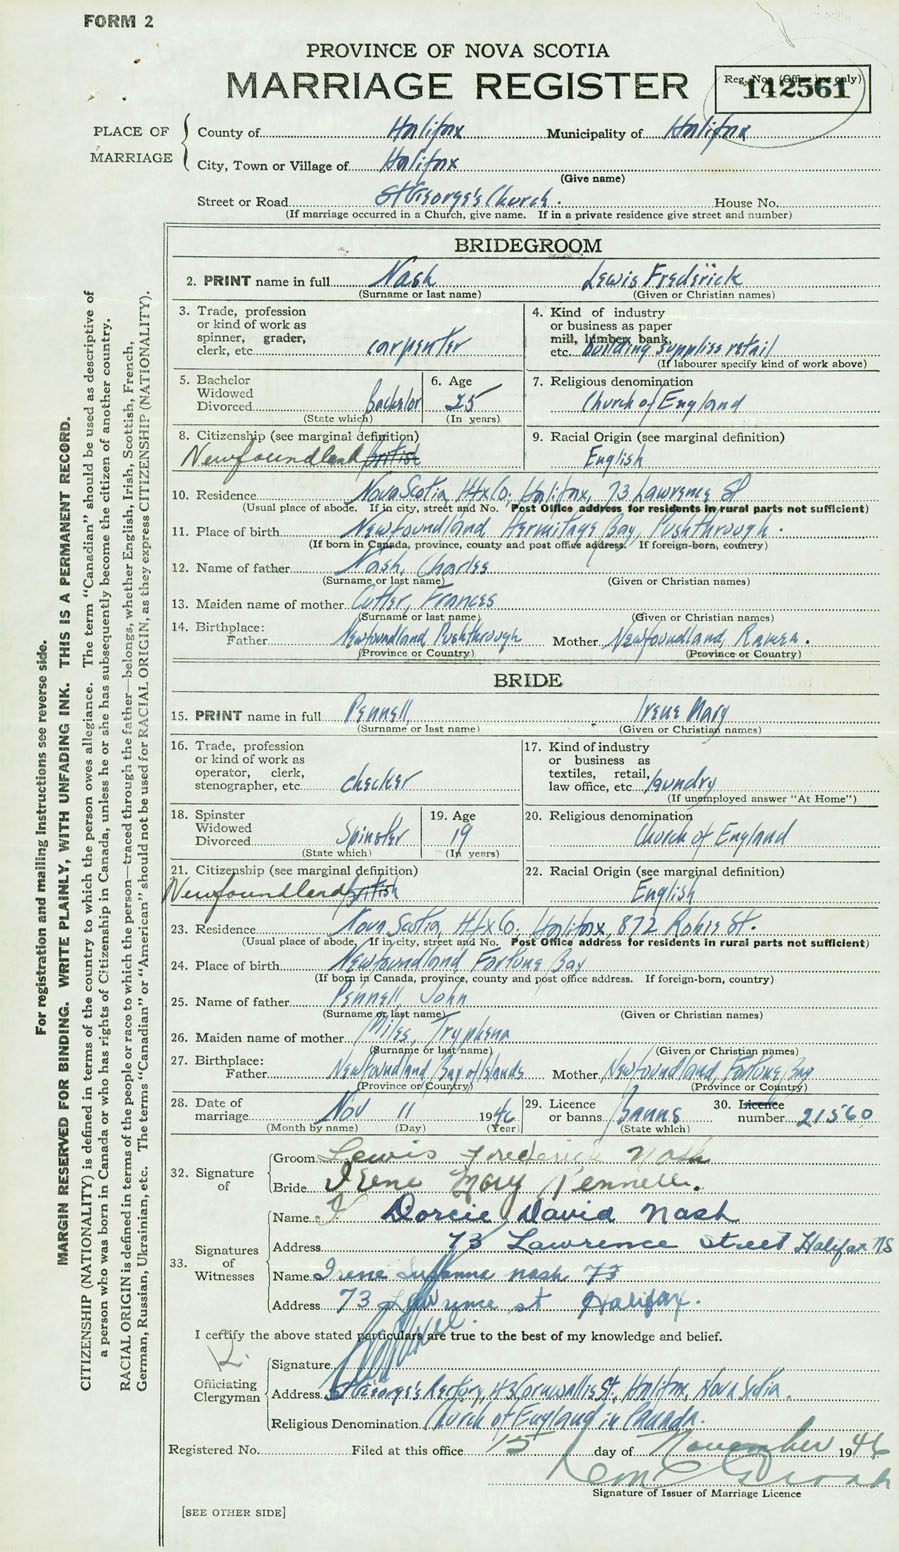 FORM 2
PROVINCE OF NOVA SCOTIA
MARRIAGE REGISTER
Reg. No. (Office use only)
142561
PLACE OF MARRIAGE
County of Halifax Municipality of Halifax
City, Town or Village of Halifax
(Give name)
Street or Road St George's Church. House No.
(If marriage occurred in a Church, give name. If in a private residence give street and number)
BRIDEGROOM
2. PRINT name in full Nash Lewis Frederick
(Surname or last name) (Given or Christian names)
3. Trade, profession or kind of work as spinner, grader, clerk, etc. carpenter
4. Kind of industry or business as paper mill, lumber, bank, etc. building supplies retail
(If labourer specify kind of work above)
5. Bachelor Widowed Divorced Bachelor
(State which)
6. Age 25
(In years)
7. Religious denomination Church of England
8. Citizenship (see marginal definition) Newfoundland British
9. Racial Origin (see marginal definition) English
10. Residence Nova Scotia, Hfx Co. Halifax, 73 Lawrence St
(Usual place of abode. If in city, street and No. Post Office address for residents in rural parts not sufficient)
11. Place of birth Newfoundland Hermitage Bay, Pushthrough.
(If born in Canada, province, county and post office address. If foreign-born, country)
12. Name of father Nash, Charles
(Surname or last name) (Given or Christian names)
13. Maiden name of mother Cutter, Frances
(Surname or last name) (Given or Christian names)
14. Birthplace: Father Newfoundland Pushthrough Mother Newfoundland,
(Province or Country) (Province or Country)
BRIDE
15. PRINT name in full Pennell, Irene Mary
(Surname or last name) (Given or Christian names)
16. Trade, profession or kind of work as operator, clerk, stenographer, etc. checker
17. Kind of industry or business as textiles, retail, law office, etc. laundry
(If unemployed answer "At Home")
18. Spinster Widowed Divorced Spinster
(State which)
19. Age 19
(In years)
20. Religious denomination Church of England
21. Citizenship (see marginal definition) Newfoundland British
22. Racial Origin (see marginal definition) English
23. Residence Nova Scotia, Hfx Co. Halifax, 872 Robie St.
(Usual place of abode, If in city, street and No. Post Office address for residents in rural parts not sufficient)
24. Place of birth Newfoundland, Fortune Bay
(If born in Canada, province, county and post office address. If foreign-born, country)
25. Name of father Pennell, John
(Surname or last name) (Given or Christian names)
26. Maiden name of mother Miles, Tryphena
(Surname or last name) (Given or Christian names)
27. Birthplace: Father Newfoundland, Bay of Islands Mother Newfoundland, Fortune Bay
(Province or Country) (Province or Country)
28. Date of marriage Nov 11 1946
(Month by name) (Day) (Year)
29. Licence or banns Banns
(State which)
30. Licence number 21560
32. Signature of
Groom Lewis Frederick Nash
Bride Irene Mary Pennell.
33. Signatures of Witnesses
Name Dorcie David Nash
Address 73 Lawrence Street Halifax NS
Name Irene Susanna Nash 73
Address 73 Lawrence st Halifax.
I certify the above stated particulars are true to the best of my knowledge and belief.
Officiating Clergyman
Signature
Address St George's Rectory, 43 Cornwallis St., Halifax, Nova Scotia.
Religious Denomination Church of England in Canada.
Registered No. Filed at this office 15 day of November 1946
Signature of Issuer of Marriage Licence
[SEE OTHER SIDE]
For registration and mailing instructions see reverse side.
MARGIN RESERVED FOR BINDING. WRITE PLAINLY, WITH UNFADING INK. THIS IS A PERMANENT RECORD.
CITIZENSHIP (NATIONALITY) is defined in terms of the country to which the person owes allegiance. The term "Canadian" should be used as descriptive of
a person who was born in Canada or who has rights of Citizenship in Canada, unless he or she has subsequently become the citizen of another country.
RACIAL ORIGIN is defined in terms of the people or race to which the person—traced through the father—belongs, whether English, Irish, Scottish, French,
German, Russian, Ukrainian, etc. The terms "Canadian" or "American" should not be used for RACIAL ORIGIN, as they express CITIZENSHIP (NATIONALITY).